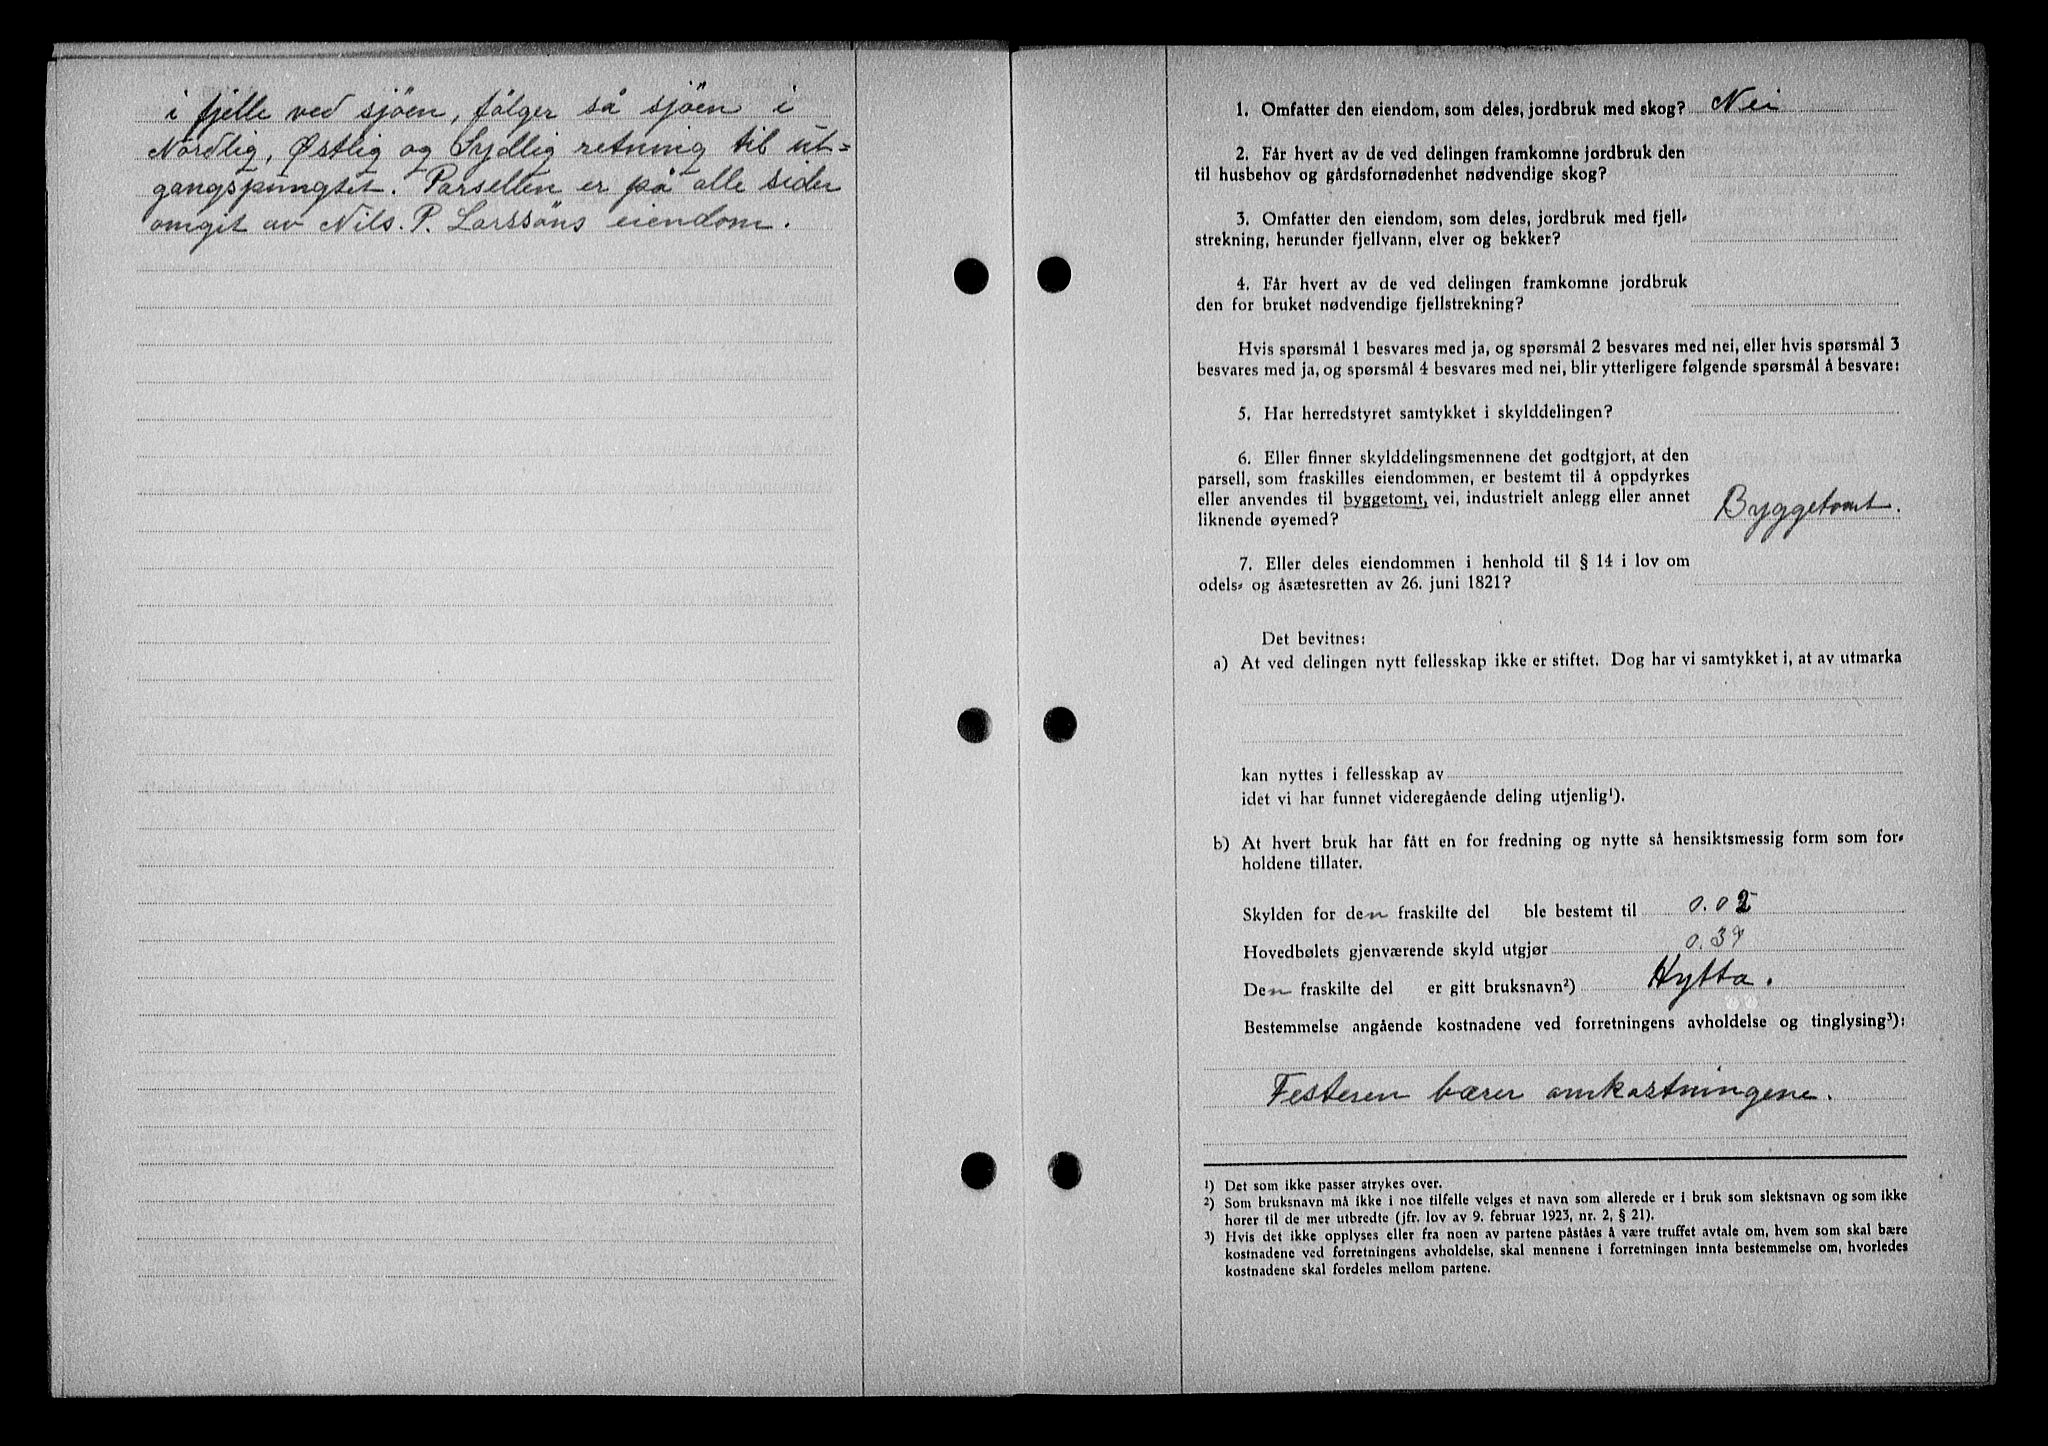 i fjelle ved sjöen, fölger så sjöen i
Nordlig, Østlig og Sydlig retning til ut=
gangspungtet. Parsellen er på alle sider
omgit av Nils. P. Larssöns eiendom.
1. Omfatter den eiendom, som deles, jordbruk med skog? Nei
2. Får hvert av de ved delingen framkomne jordbruk den
til husbehov og gårdsfornødenhet nødvendige skog?
3. Omfatter den eiendom, som deles, jordbruk med fjell-
strekning, herunder fjellvann, elver og bekker?
4. Får hvert av de ved delingen framkomne jordbruk
den for bruket nødvendige fjellstrekning?
Hvis spørsmål 1 besvares med ja, og spørsmål 2 besvares med nei, eller hvis spørsmål 3
besvares med ja, og spørsmål 4 besvares med nei, blir ytterligere følgende spørsmål å besvare:
5. Har herredstyret samtykket i skylddelingen?
6. Eller finner skylddelingsmennene det godtgjort, at den
parsell, som fraskilles eiendommen, er bestemt til å oppdyrkes
eller anvendes til byggetomt, vei, industrielt anlegg eller annet
liknende øyemed? Byggetomt.
7. Eller deles eiendommen i henhold til § 14 i lov om
odels- og åsætesretten av 26. juni 1821?
Det bevitnes:
a) At ved delingen nytt fellesskap ikke er stiftet. Dog har vi samtykket i, at av utmarka
kan nyttes i fellesskap av
idet vi har funnet videregående deling utjenlig¹).
b) At hvert bruk har fått en for fredning og nytte så hensiktsmessig form som for-
holdene tillater.
Skylden for den fraskilte del ble bestemt til 0.02
Hovedbølets gjenværende skyld utgjør 0.39
Den fraskilte del er gitt bruksnavn²) Hytta.
Bestemmelse angående kostnadene ved forretningens avholdelse og tinglysing³):
Festeren bærer omkostningene.
¹) Det som ikke passer strykes over.
²) Som bruksnavn må ikke i noe tilfelle velges et navn som allerede er i bruk som slektsnavn og som ikke
hører til de mer utbredte (jfr. lov av 9. februar 1923, nr. 2, § 21).
³) Hvis det ikke opplyses eller fra noen av partene påståes å være truffet avtale om, hvem som skal bære
kostnadene ved forretningens avholdelse, skal mennene i forretningen innta bestemmelse om, hvorledes
kostnadene skal fordeles mellom partene.